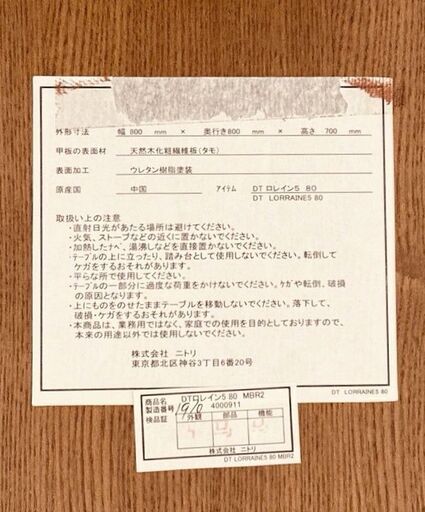 外形寸法 幅 800 mm × 奥行き800 mm × 高さ 700 mm
甲板の表面材 天然木化粧繊維板(タモ)
表面加工 ウレタン樹脂塗装
原産国 中国 アイテム DT ロレイン5 80
DT LORRAINE5 80
取扱い上の注意
・直射日光があたる場所は避けてください。
・火気、ストーブなどの近くに置かないでください。
・加熱したナベ、湯沸しなどを直接置かないでください。
・テーブルの上に立ったり、踏み台として使用しないでください。転倒して
ケガをするおそれがあります。
・平らな所で使用してください。
・テーブルの一部分に過度な荷重をかけないでください。ケガや転倒、破損
の原因となります。
・上にものをのせたままテーブルを移動しないでください。落下して、
破損・ケガをするおそれがあります。
・本商品は、業務用ではなく、家庭での使用を目的としておりますので、
本来の用途以外では使用しないでください。
株式会社 ニトリ
東京都北区神谷3丁目6番20号
DT LORRAINE5 80
商品名 DTロレイン5 80 MBR2
製造番号 1910 4000911
検品証 外観 部品 機能
株式会社 ニトリ
DT LORRAINE5 80 MBR2